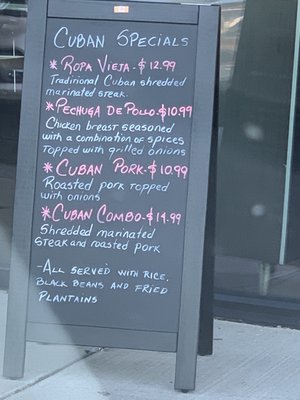 Cuban Specials
* Ropa Vieja - $12.99
Traditional Cuban shredded
marinated steak.
* Pechuga De Pollo - $10.99
Chicken breast seasoned
with a combination of spices
Topped with grilled onions
* Cuban Pork - $10.99
Roasted pork topped
with onions
* Cuban Combo - $14.99
Shredded marinated
steak and roasted pork
- All served with rice,
black beans and fried
plantains